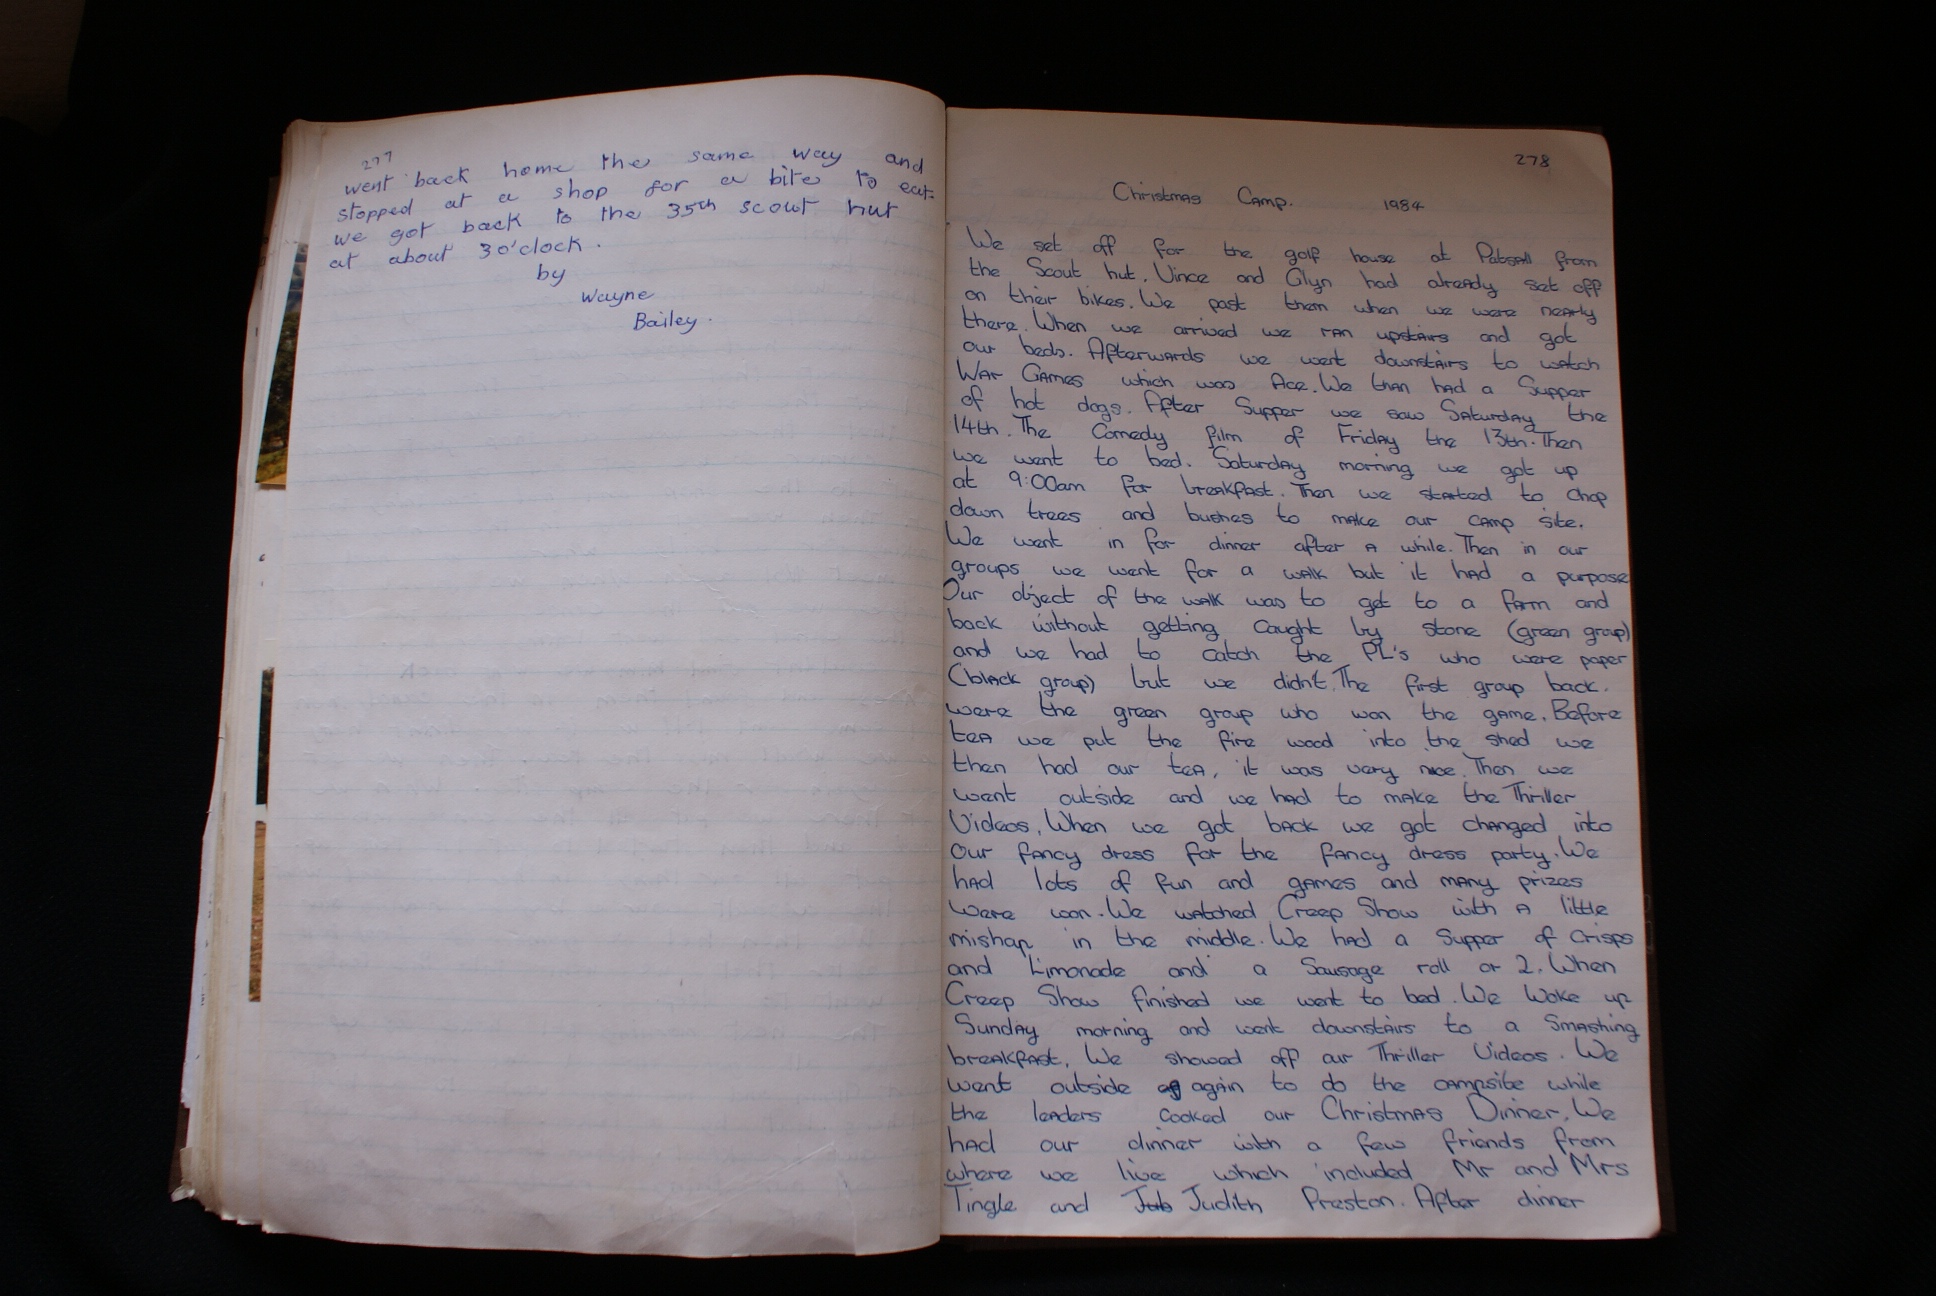 277
went back home the same way and
stopped at a shop for a bite to eat.
we got back to the 35th scout hut
at about 3 o'clock.
by
Wayne
Bailey.
278
Christmas Camp. 1984
We set off for the golf house at Patsall from
the Scout hut. Vince and Glyn had already set off
on their bikes. We past them when we were nearly
there. When we arrived we ran upstairs and got
our beds. Afterwards we went downstairs to watch
War Games which was Ace. We than had a Supper
of hot dogs. After Supper we saw Saturday the
14th. The Comedy film of Friday the 13th. Then
we went to bed. Saturday morning we got up
at 9:00am for breakfast. Then we started to chop
down trees and bushes to make our camp site.
We went in for dinner after a while. Then in our
groups we went for a walk but it had a purpose
Our object of the walk was to get to a farm and
back without getting caught by stone (green group)
and we had to catch the PL's who were paper
(black group) but we didn't. The first group back.
were the green group who won the game. Before
tea we put the fire wood into the shed we
then had our tea, it was very nice. Then we
went outside and we had to make the Thriller
Videos. When we got back we got changed into
our fancy dress for the fancy dress party. We
had lots of fun and games and many prizes
were won. We watched Creep Show with a little
mishap in the middle. We had a Supper of crisps
and Limonade and a Sausage roll or 2. When
Creep Show finished we went to bed. We Woke up
Sunday morning and went downstairs to a Smashing
breakfast. We showed off our Thriller Videos. We
went outside again to do the campsite while
the leaders cooked our Christmas Dinner. We
had our dinner with a few friends from
where we live which included Mr and Mrs
Tingle and Jub Judith Preston. After dinner